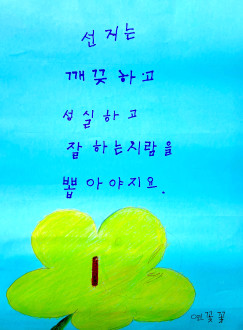 선거는
깨끗하고
성실하고
잘 하는사람을
뽑아야지요.